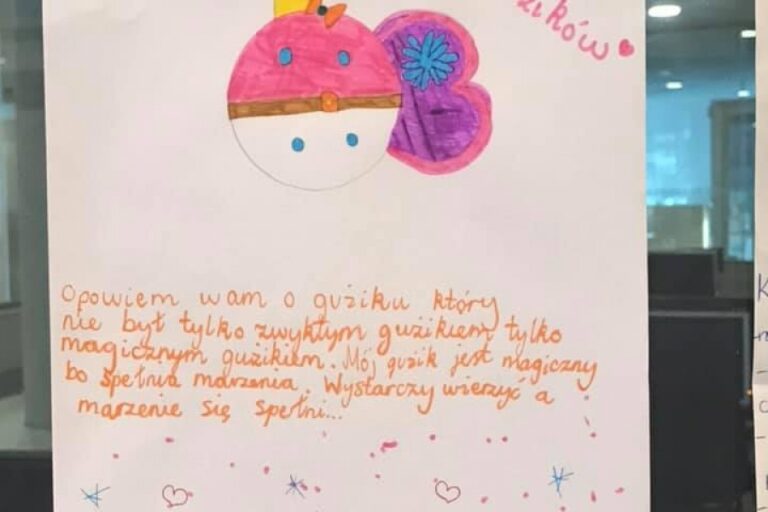 Opowiem wam o guziku który
nie był tylko zwykłym guzikiem tylko
magicznym guzikiem. Mój guzik jest magiczny
bo spełnia marzenia. Wystarczy wierzyć a
marzenie się spełni...